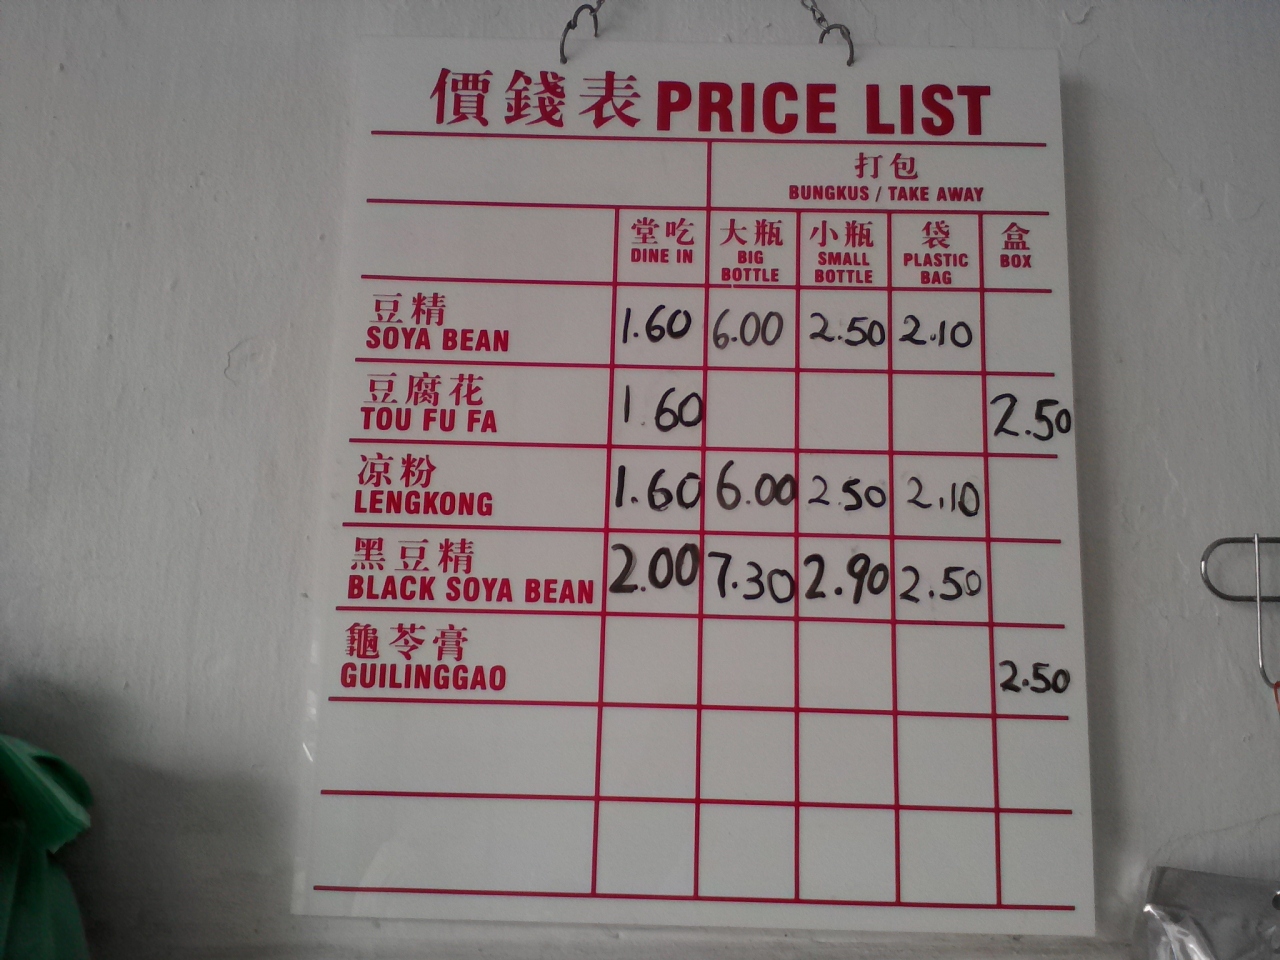 價錢表 PRICE LIST
打包
BUNGKUS / TAKE AWAY
堂吃 大瓶 小瓶 袋 盒
DINE IN BIG BOTTLE SMALL BOTTLE PLASTIC BAG BOX
豆精
SOYA BEAN 1.60 6.00 2.50 2.10
豆腐花
TOU FU FA 1.60 2.50
凉粉
LENGKONG 1.60 6.00 2.50 2.10
黑豆精
BLACK SOYA BEAN 2.00 7.30 2.90 2.50
龜苓膏
GUILINGGAO 2.50